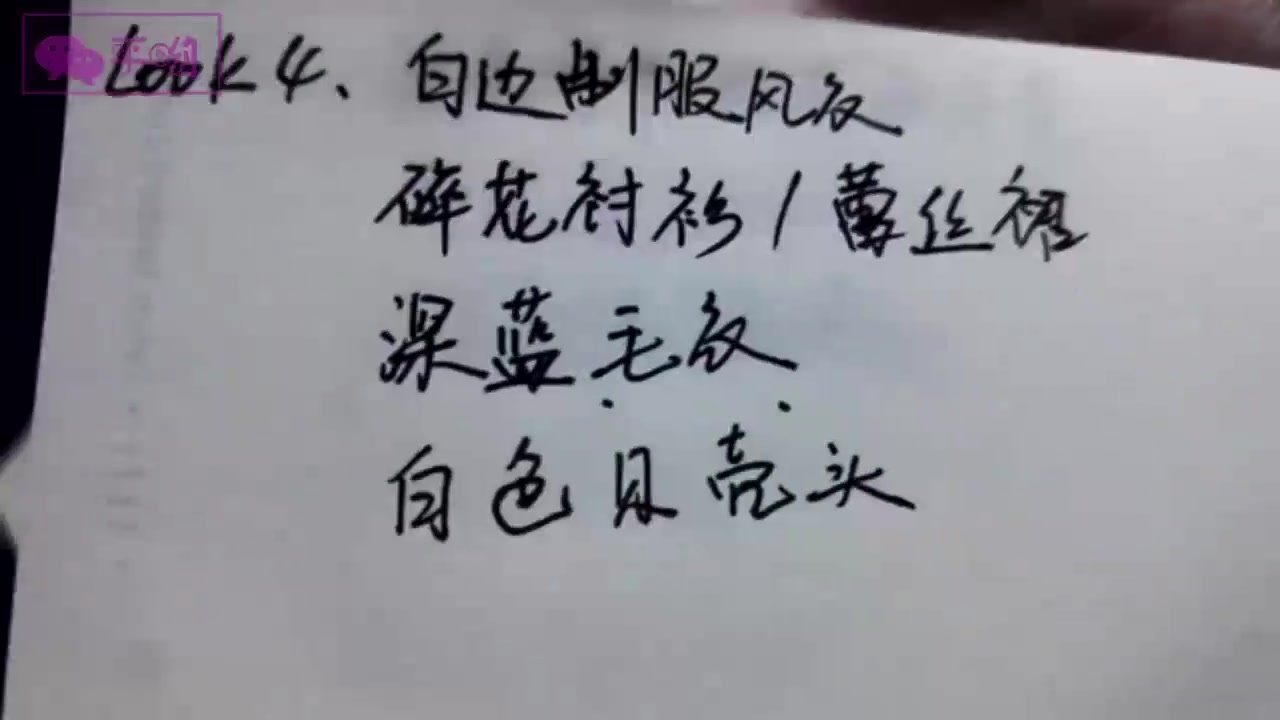 Look 4、白边制服风衣
碎花衬衫/蕾丝裙
深蓝毛衣
白色贝壳头